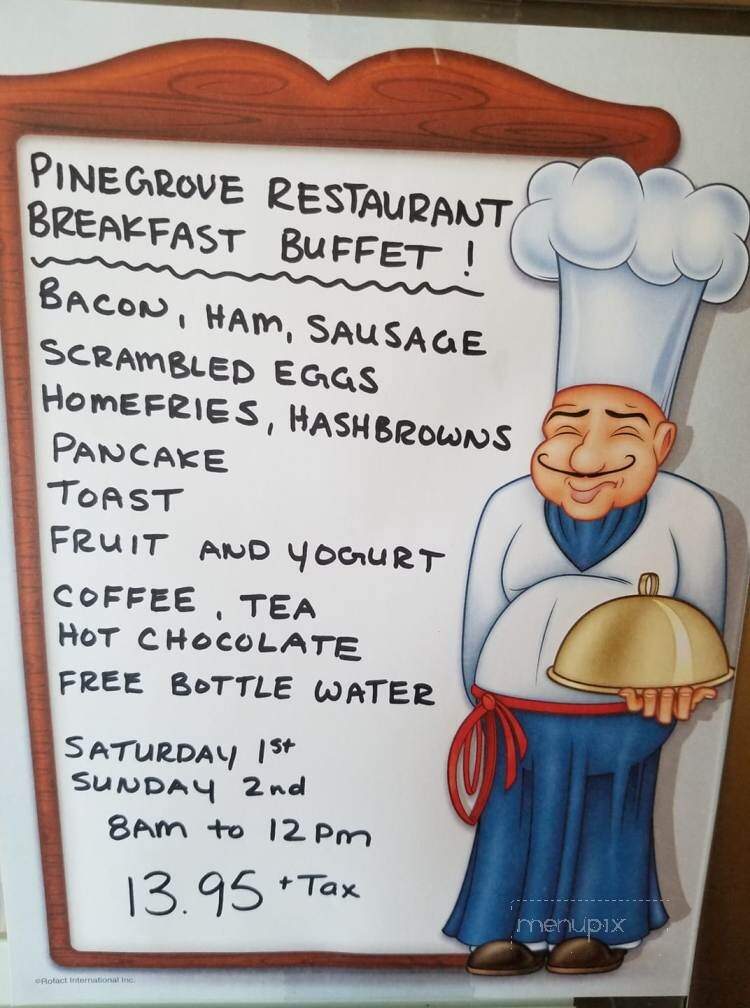 PINEGROVE RESTAURANT
BREAKFAST BUFFET !
BACON, HAM, SAUSAGE
SCRAMBLED EGGS
HOMEFRIES, HASHBROWNS
PANCAKE
TOAST
FRUIT AND YOGURT
COFFEE, TEA
HOT CHOCOLATE
FREE BOTTLE WATER
SATURDAY 1st
SUNDAY 2nd
8AM to 12 Pm
13.95 + Tax
menupix
©Rofact International Inc.